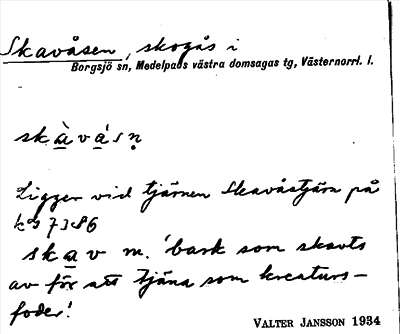 Skavåsen, skogås i
Borgsjö sn, Medelpads västra domsagas tg, Västernorrl. l.
skàvá̊sn̥
Ligger vid tjärnen Skavåstjärn på
kbl 7386
skav m. 'bark som skavts
av för att tjäna som kreaturs-
foder'.
VALTER JANSSON 1934